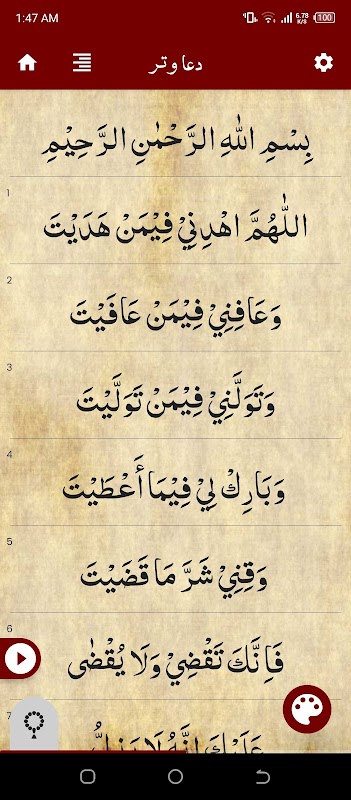 1:47 AM 6.78 K/S 100
دعا وتر
بِسْمِ اللّٰهِ الرَّحْمٰنِ الرَّحِيْمِ
1
اللّٰهُمَّ اهْدِنِيْ فِيْمَنْ هَدَيْتَ
2
وَعَافِنِيْ فِيْمَنْ عَافَيْتَ
3
وَتَوَلَّنِيْ فِيْمَنْ تَوَلَّيْتَ
4
وَبَارِكْ لِيْ فِيْمَا أَعْطَيْتَ
5
وَقِنِيْ شَرَّ مَا قَضَيْتَ
6
فَاِنَّكَ تَقْضِيْ وَلَا يُقْضٰى
7
عَلَيْكَ اِنَّهٗ لَا يَذِلُّ